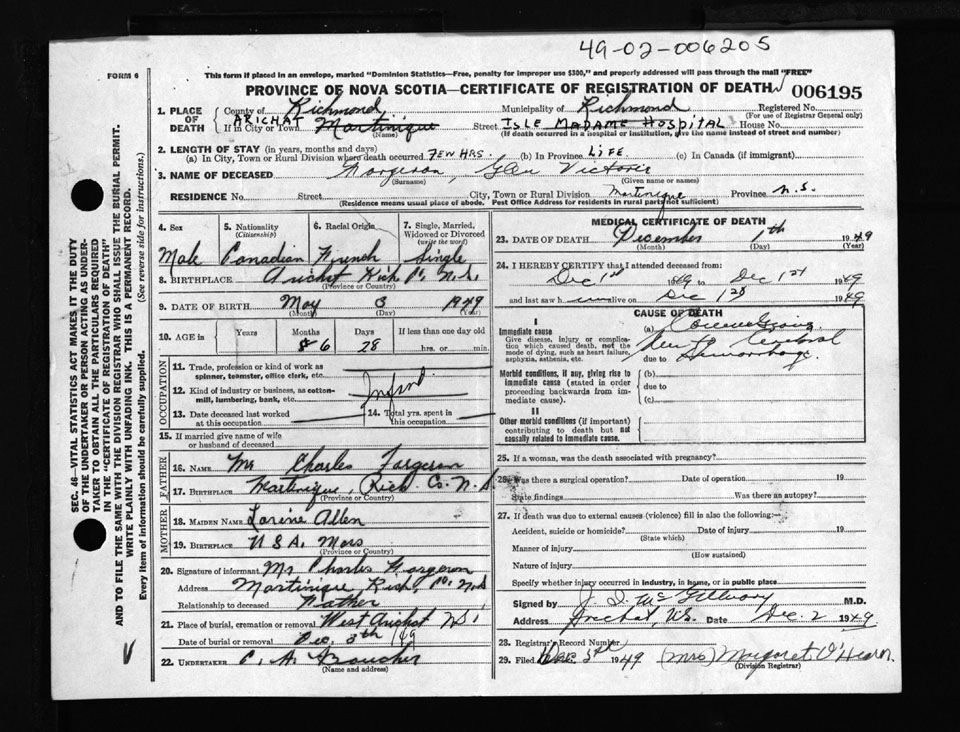 49-02-006205
FORM 6
This form if placed in an envelope, marked "Dominion Statistics—Free, penalty for improper use $300," and properly addressed will pass through the mail "FREE"
PROVINCE OF NOVA SCOTIA—CERTIFICATE OF REGISTRATION OF DEATH 006195
1. PLACE OF DEATH County of Richmond Municipality of Richmond Registered No.
(For use of Registrar General only)
ARICHAT If in City or Town Martinique Street ISLE MADAME HOSPITAL House No.
(Name) (If death occurred in a hospital or institution, give the name instead of street and number)
2. LENGTH OF STAY (in years, months and days)
(a) In City, Town or Rural Division where death occurred FEW HRS. (b) In Province LIFE (c) In Canada (if immigrant)
3. NAME OF DECEASED Forgeron, Glen Victoria
(Surname) (Given name or names)
RESIDENCE No. Street City, Town or Rural Division Martinique Province N.S.
(Residence means usual place of abode. Post Office Address for residents in rural parts not sufficient)
4. Sex 5. Nationality (Citizenship) 6. Racial Origin 7. Single, Married, Widowed or Divorced (write the word)
Male Canadian French Single
8. BIRTHPLACE Arichat Rich Co. N.S.
(Province or Country)
9. DATE OF BIRTH May 3 1949
(Month) (Day) (Year)
10. AGE in Years Months Days If less than one day old
8 6 28 hrs. or min.
OCCUPATION
11. Trade, profession or kind of work as spinner, teamster, office clerk, etc.
12. Kind of industry or business, as cotton-mill, lumbering, bank, etc. Infant
13. Date deceased last worked at this occupation 14. Total yrs. spent in this occupation
15. If married give name of wife or husband of deceased
FATHER
16. NAME Mr Charles Forgeron
17. BIRTHPLACE Martinique, Rich Co. N.S
(Province or Country)
MOTHER
18. MAIDEN NAME Lorine Allen
19. BIRTHPLACE U.S.A. Mass
(Province or Country)
20. Signature of informant Mr Charles Forgeron
Address Martinique Rich, Co. N.S
Relationship to deceased Father
21. Place of burial, cremation or removal West Arichat N.S.
Date of burial or removal Dec. 3th /49
22. UNDERTAKER C. A. Boucher
(Name and address)
MEDICAL CERTIFICATE OF DEATH
23. DATE OF DEATH December 1th 1949
(Month) (Day)
24. I HEREBY CERTIFY that I attended deceased from:
Dec 1st 1949 Dec 1st 1949
and last saw h alive on Dec 1st 1949
CAUSE OF DEATH
I
Immediate cause (a)
Give disease, injury or complication which caused death, not the mode of dying, such as heart failure, asphyxia, asthenia, etc.
due to Cerebral Hemorrhage
Morbid conditions, if any, giving rise to immediate cause (stated in order proceeding backwards from immediate cause). (b)
due to
(c)
II
Other morbid conditions (if important) contributing to death but not causally related to immediate cause.
25. If a woman, was the death associated with pregnancy?
26. Was there a surgical operation? Date of operation 19
State findings Was there an autopsy?
27. If death was due to external causes (violence) fill in also the following:—
Accident, suicide or homicide? Date of injury 19
(State which)
Manner of injury
(How sustained)
Nature of injury
Specify whether injury occurred in industry, in home, or in public place
Signed by M.D.
Address Arichat, N.S. Date Dec. 2 1949
28. Registrar's Record Number
29. Filed Dec 3rd 1949 (Mrs) Margaret O'Hearn.
(Division Registrar)
SEC. 46—VITAL STATISTICS ACT MAKES IT THE DUTY
OF THE UNDERTAKER OR PERSON ACTING AS UNDER-
TAKER TO OBTAIN ALL THE PARTICULARS REQUIRED
IN THE "CERTIFICATE OF REGISTRATION OF DEATH"
AND TO FILE THE SAME WITH THE DIVISION REGISTRAR WHO SHALL ISSUE THE BURIAL PERMIT.
WRITE PLAINLY WITH UNFADING INK. THIS IS A PERMANENT RECORD.
Every item of information should be carefully supplied. (See reverse side for instructions.)